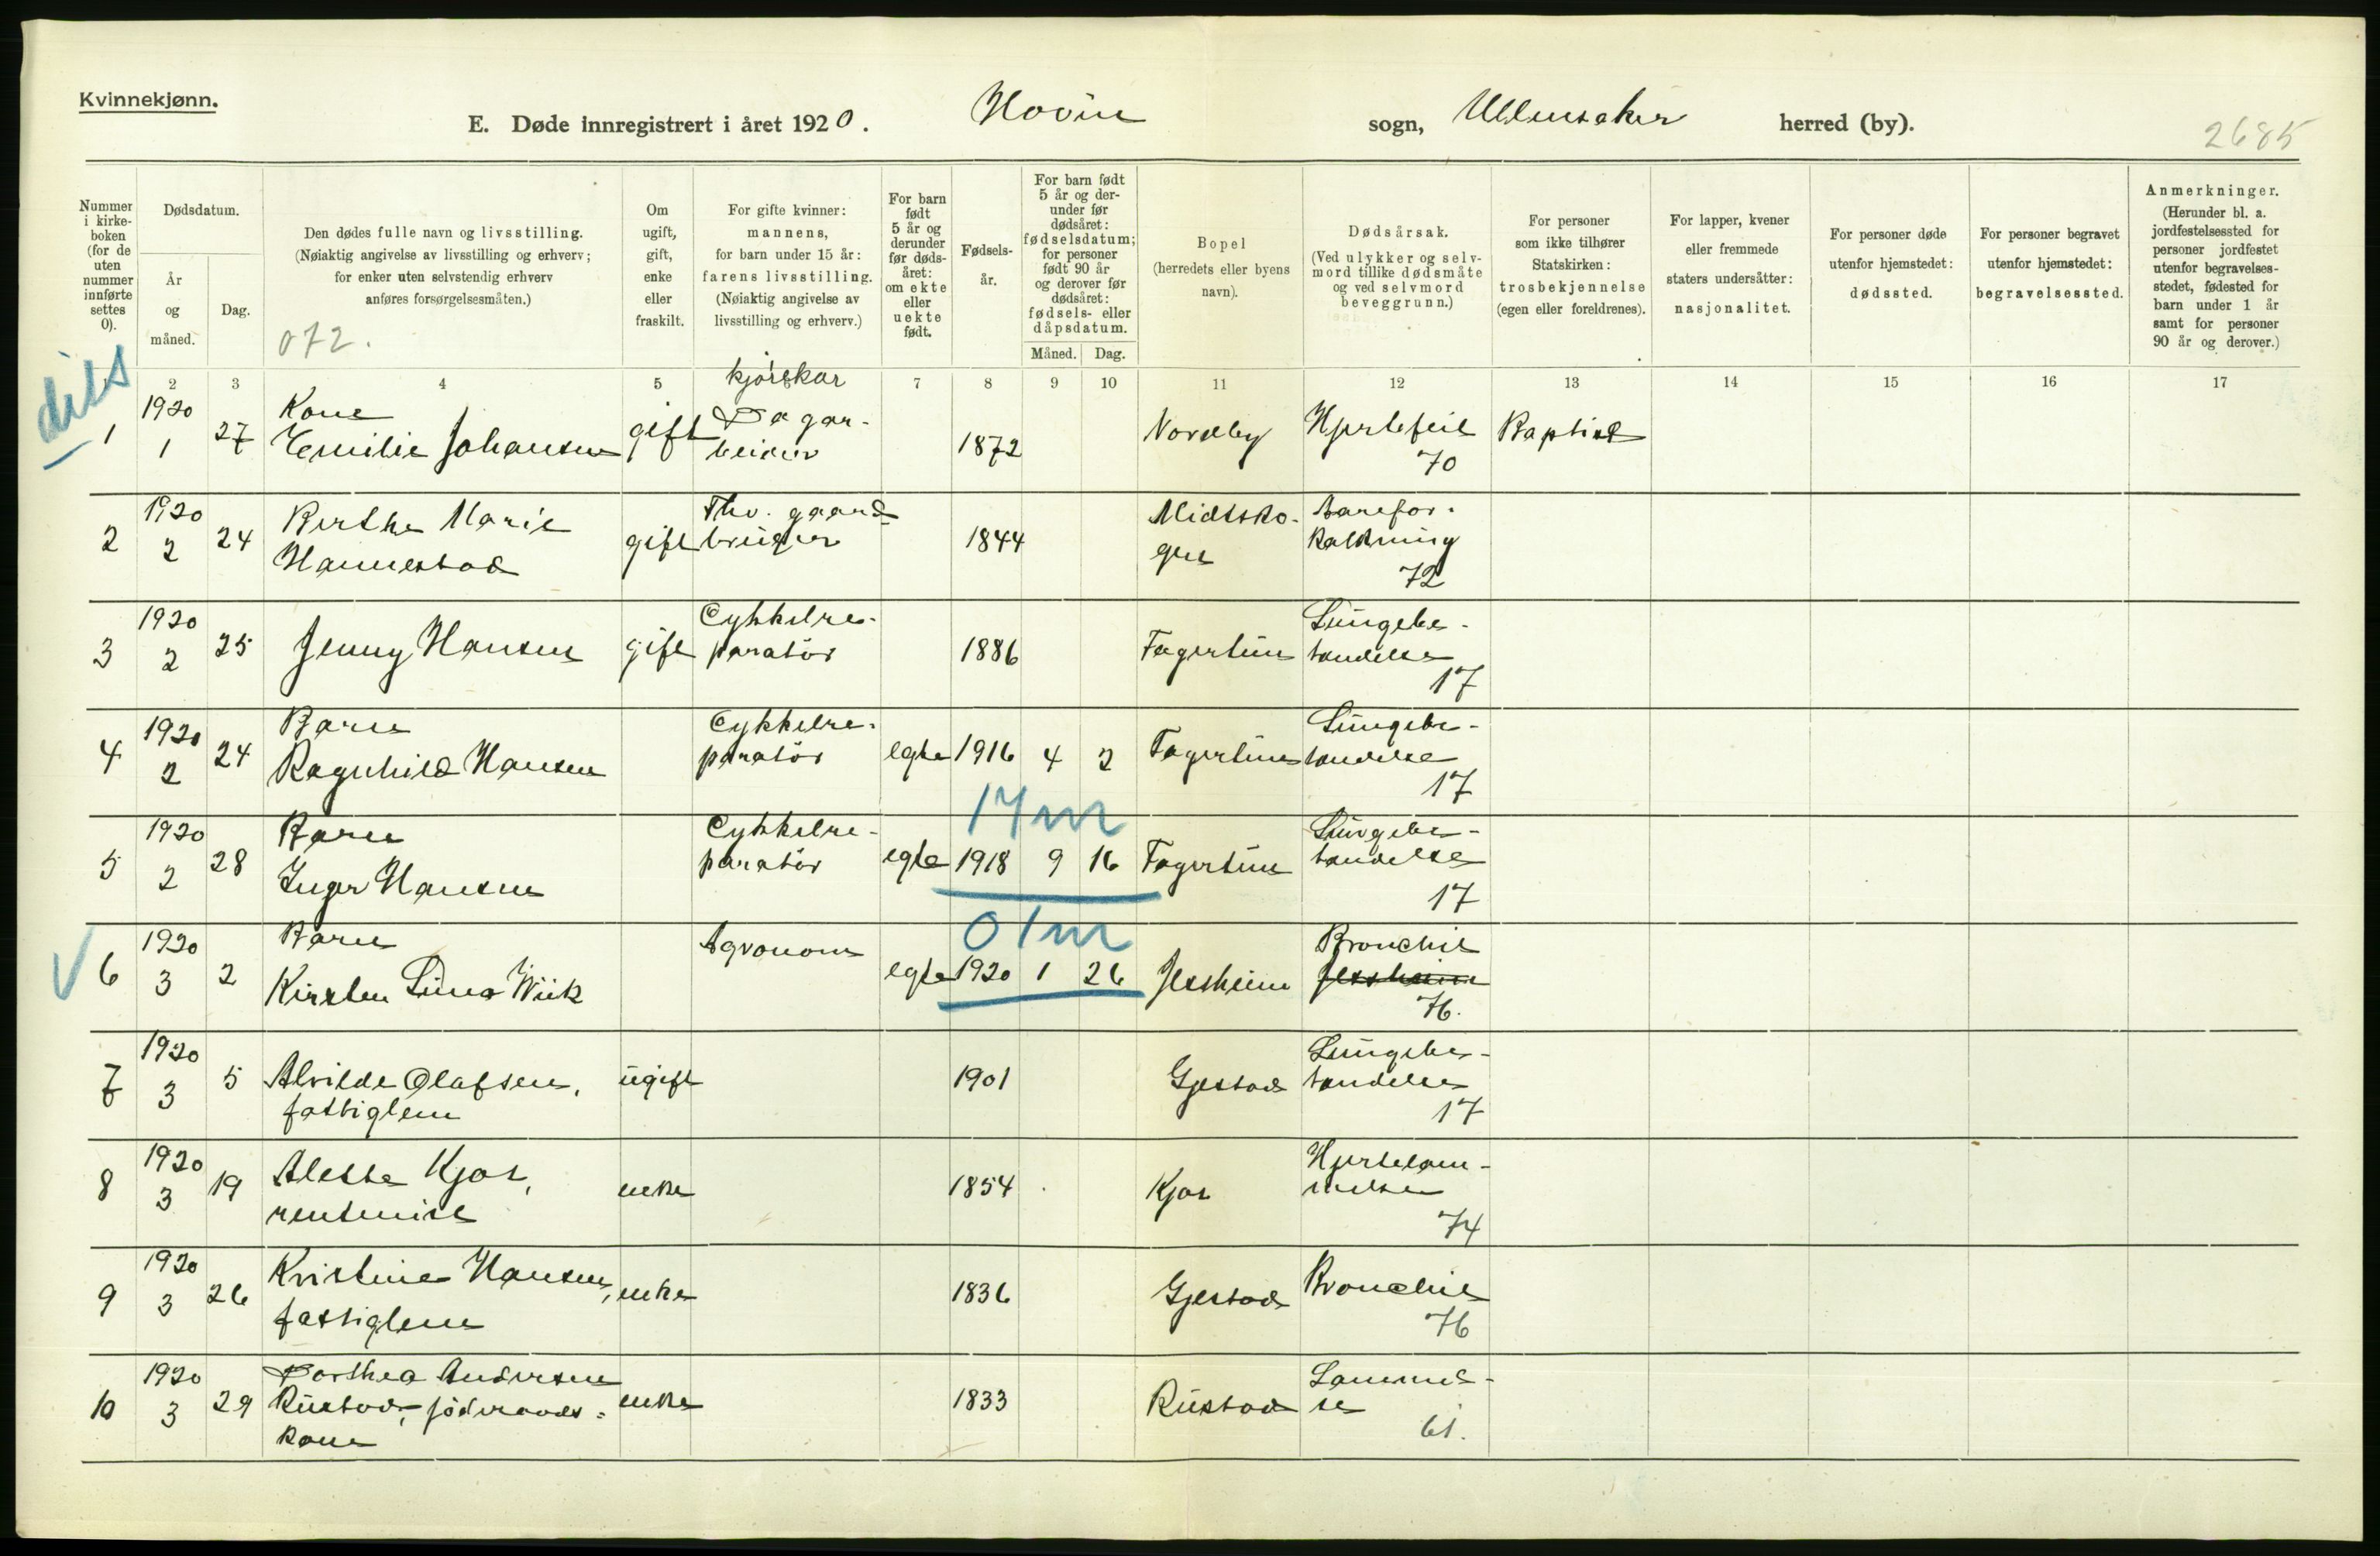 Kvinnekjønn.
E. Døde innregistrert i året 1920. Hovin sogn, Ullensaker herred (by).
2685
Nummer i kirke-boken (for de uten nummer innførte settes 0).
Dødsdatum.
År og måned.
Dag.
Den dødes fulle navn og livsstilling.
(Nøiaktig angivelse av livsstilling og erhverv;
for enker uten selvstendig erhverv
anføres forsørgelsesmåten.)
072.
Om ugift, gift, enke eller fraskilt.
For gifte kvinner:
mannens,
for barn under 15 år:
farens livsstilling.
(Nøiaktig angivelse av
livsstilling og erhverv.)
For barn født 5 år og derunder før døds-året: om ekte eller uekte født.
Fødsels-år.
For barn født 5 år og der-under før dødsåret: fødselsdatum; for personer født 90 år og derover før dødsåret: fødsels- eller dåpsdatum.
Måned. Dag.
Bopel
(herredets eller byens navn).
Dødsårsak.
(Ved ulykker og selv-mord tillike dødsmåte og ved selvmord beveggrunn.)
For personer som ikke tilhører Statskirken: trosbekjennelse (egen eller foreldrenes).
For lapper, kvener eller fremmede staters undersåtter: nasjonalitet.
For personer døde utenfor hjemstedet: dødssted.
For personer begravet utenfor hjemstedet: begravelsessted.
Anmerkninger.
(Herunder bl. a. jordfestelsessted for personer jordfestet utenfor begravelses-stedet, fødested for barn under 1 år samt for personer 90 år og derover.)
2 3 4 5 7 8 9 10 11 12 13 14 15 16 17
1 1920 1 27 Kone Emilie Johansen gift Dagar-beider 1872 Nordby Hjertefeil 70 Baptist
2 1920 2 24 Berthe Marie Hannestad gift fhv. gaard-bruger 1844 Midtsko-gen Aarefor-kalkning 72
3 1920 2 25 Jenny Hansen gift Cykkelre-paratör 1886 Fagertun Lungebe-tændelse 17
4 1920 2 24 Barn Ragnhild Hansen Cykkelre-paratör egte 1916 4 2 Fagertun Lungebe-tændelse 17
17m
5 1920 2 28 Barn Inger Hansen Cykkelre-paratör egte 1918 9 16 Fagertun Lungebe-tændelse 17
01m
6 1920 3 2 Barn Kirsten Wiik Agronom egte 1920 1 26 Jessheim Bronchit Jessheim 76.
7 1920 3 5 Alvilde Olafsen, fattiglem ugift 1901 Gjestad Lungebe-tændelse 17
8 1920 3 19 Alette Kjos, rentenist enke 1854 Kjos Hjertelam-melse 74
9 1920 3 26 Kristine Hansen, fattiglem enke 1836 Gjestad Bronchit 76
10 1920 3 29 Dorthea Andersen Rustad, föderaads-kone enke 1833 Rustad Lammel-se 61.